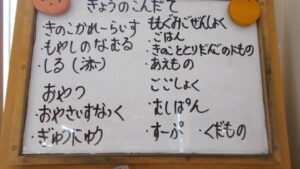 きょうのこんだて
きのこかれーらいす
・もやしのなむる
・しる(添)
おやつ
・おやさいすなっく
・ぎゅうにゅう
ももぐみごぜんしょく
・ごはん
・きのこととりだんごのにもの
・あえもの
ごごしょく
・むしぱん
・すーぷ ・くだもの